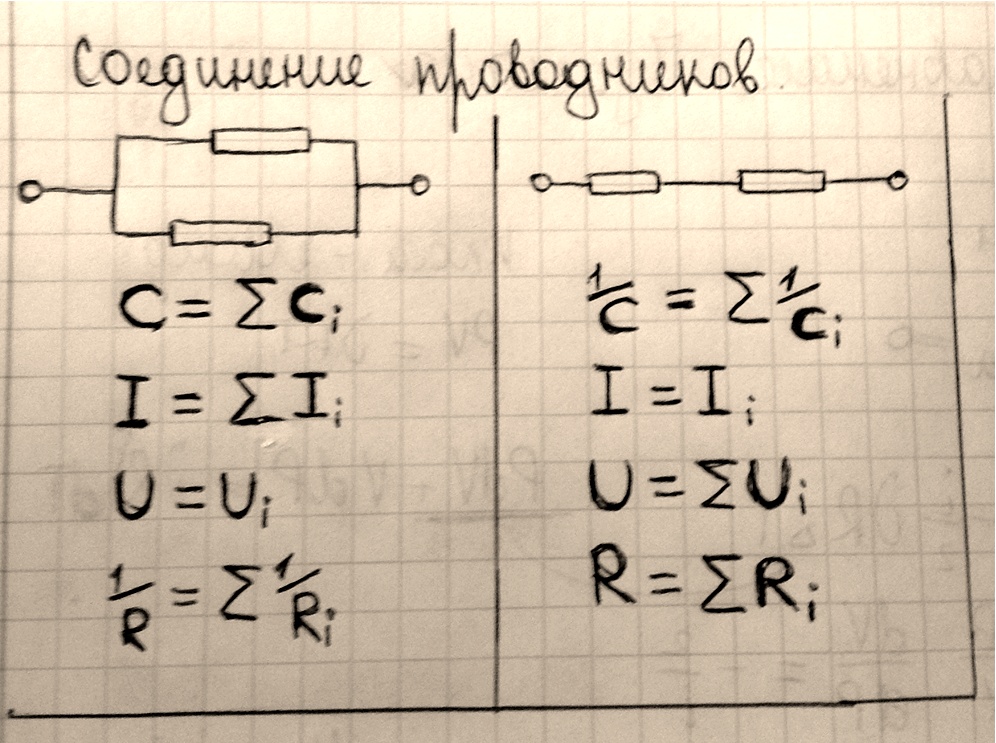 Соединение проводников
C = ΣCᵢ
I = ΣIᵢ
U = Uᵢ
1/R = Σ1/Rᵢ
1/C = Σ1/Cᵢ
I = Iᵢ
U = ΣUᵢ
R = ΣRᵢ